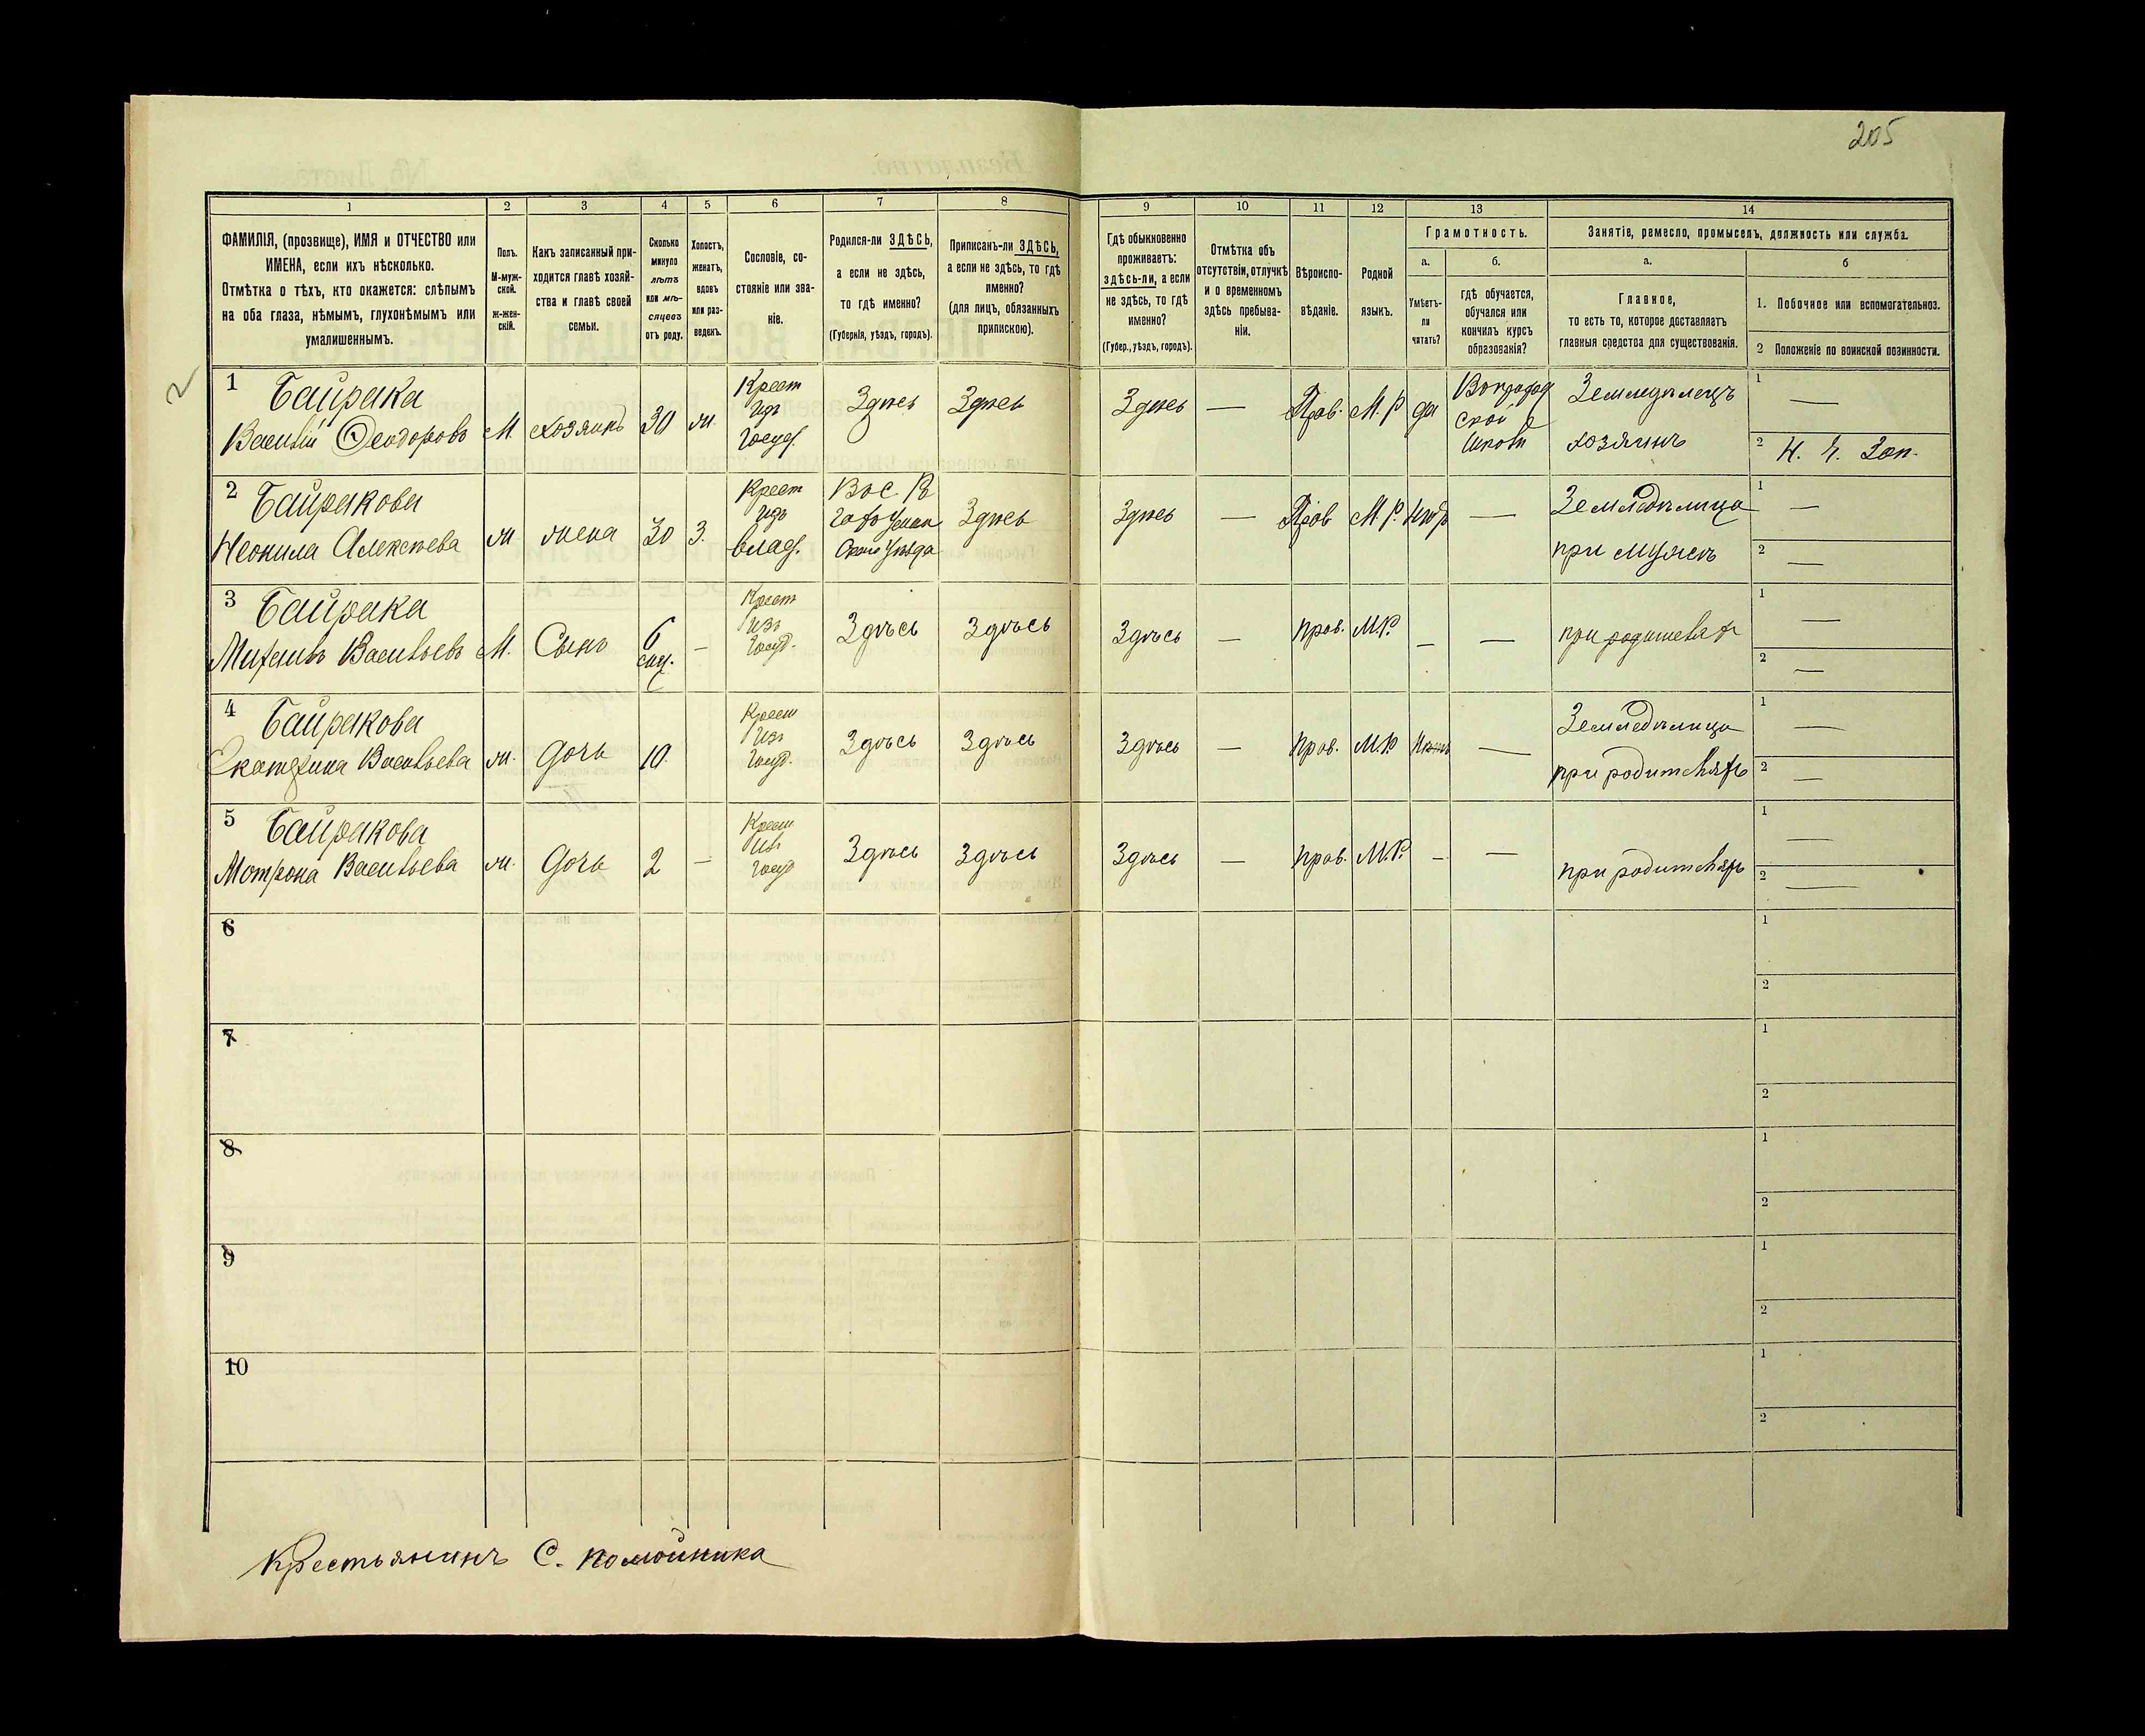 205
1 2 3 4 5 6 7 8 9 10 11 12 13 14
ФАМИЛІЯ, (прозвище), ИМЯ и ОТЧЕСТВО или
ИМЕНА, если ихъ нѣсколько.
Отмѣтка о тѣхъ, кто окажется: слѣпымъ
на оба глаза, нѣмымъ, глухонѣмымъ или
умалишеннымъ.
Полъ.
М-муж-
ской.
Ж-жен-
скій.
Какъ записанный при-
ходится главѣ хозяй-
ства и главѣ своей
семьи.
Сколько
минуло
лѣтъ
или мѣ-
сяцевъ
отъ роду.
Холостъ,
женатъ,
вдовъ
или раз-
веденъ.
Сословіе, со-
стояніе или зва-
ніе.
Родился-ли ЗДѢСЬ,
а если не здѣсь,
то гдѣ именно?
(Губернія, уѣздъ, городъ).
Приписанъ-ли ЗДѢСЬ,
а если не здѣсь, то гдѣ
именно?
(для лицъ, обязанныхъ
припискою).
Гдѣ обыкновенно
проживаетъ:
здѣсь-ли, а если
не здѣсь, то гдѣ
именно?
(Губер., уѣздъ, городъ).
Отмѣтка объ
отсутствіи, отлучкѣ
и о временномъ
здѣсь пребыва-
ніи.
Вѣроиспо-
вѣданіе.
Родной
языкъ.
Грамотность.
а.
Умѣетъ-
ли
читать?
б.
гдѣ обучается,
обучался или
кончилъ курсъ
образованія?
Занятіе, ремесло, промыселъ, должность или служба.
а.
Главное,
то есть то, которое доставляетъ
главныя средства для существованія.
б
1. Побочное или вспомогательное.
2 Положеніе по воинской повинности.
1
Байрака
Василій Ѳеодоровъ
М.
хозяинъ
30
ж.
Крест
изъ
Госуд.
Здѣсь
Здѣсь
Здѣсь
—
Прав.
М. Р
да
ской
школѣ
Земледѣлецъ
хозяинъ
1 —
2 Н. Ч. Зап.
2
Байракова
Неонила Алексѣева
ж
жена
30
З.
Крест
изъ
влад.
Здѣсь
Здѣсь
—
Прав
М. Р.
—
Земледѣлица
при мужѣ
1 —
2 —
3
Байрака
Михаилъ Васильевъ
М.
Сынъ
6
—
Крест
изъ
Госуд.
Здѣсь
Здѣсь
Здѣсь
—
прав.
М.Р.
—
—
при родителяхъ
1 —
2 —
4
Байракова
Екатерина Васильева
ж.
Дочь
10.
Крест
изъ
Госуд.
Здѣсь
Здѣсь
Здѣсь
—
прав.
М.Р
Нѣтъ
—
Земледѣлица
при родителяхъ
1 —
2 —
5
Байракова
Мотрона Васильева
ж.
Дочь
2
—
Крест
изъ
Госуд
Здѣсь
Здѣсь
Здѣсь
—
прав.
М.Р.
—
—
при родителяхъ
1 —
2 —
6
1
2
7
1
2
8
1
2
9
1
2
10
1
2
Крестьянинъ С. Помойника